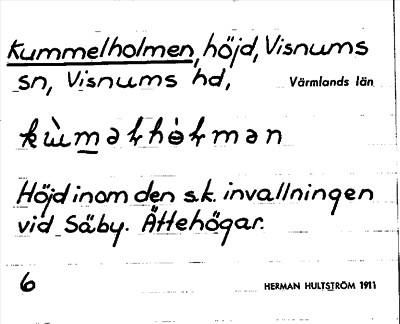 Kummelholmen, höjd, Visnums
sn, Visnums hd, Värmlands län
Höjd inom den s.k. invallningen
vid Säby. Ättehögar.
6 HERMAN HULTSTRÖM 1911